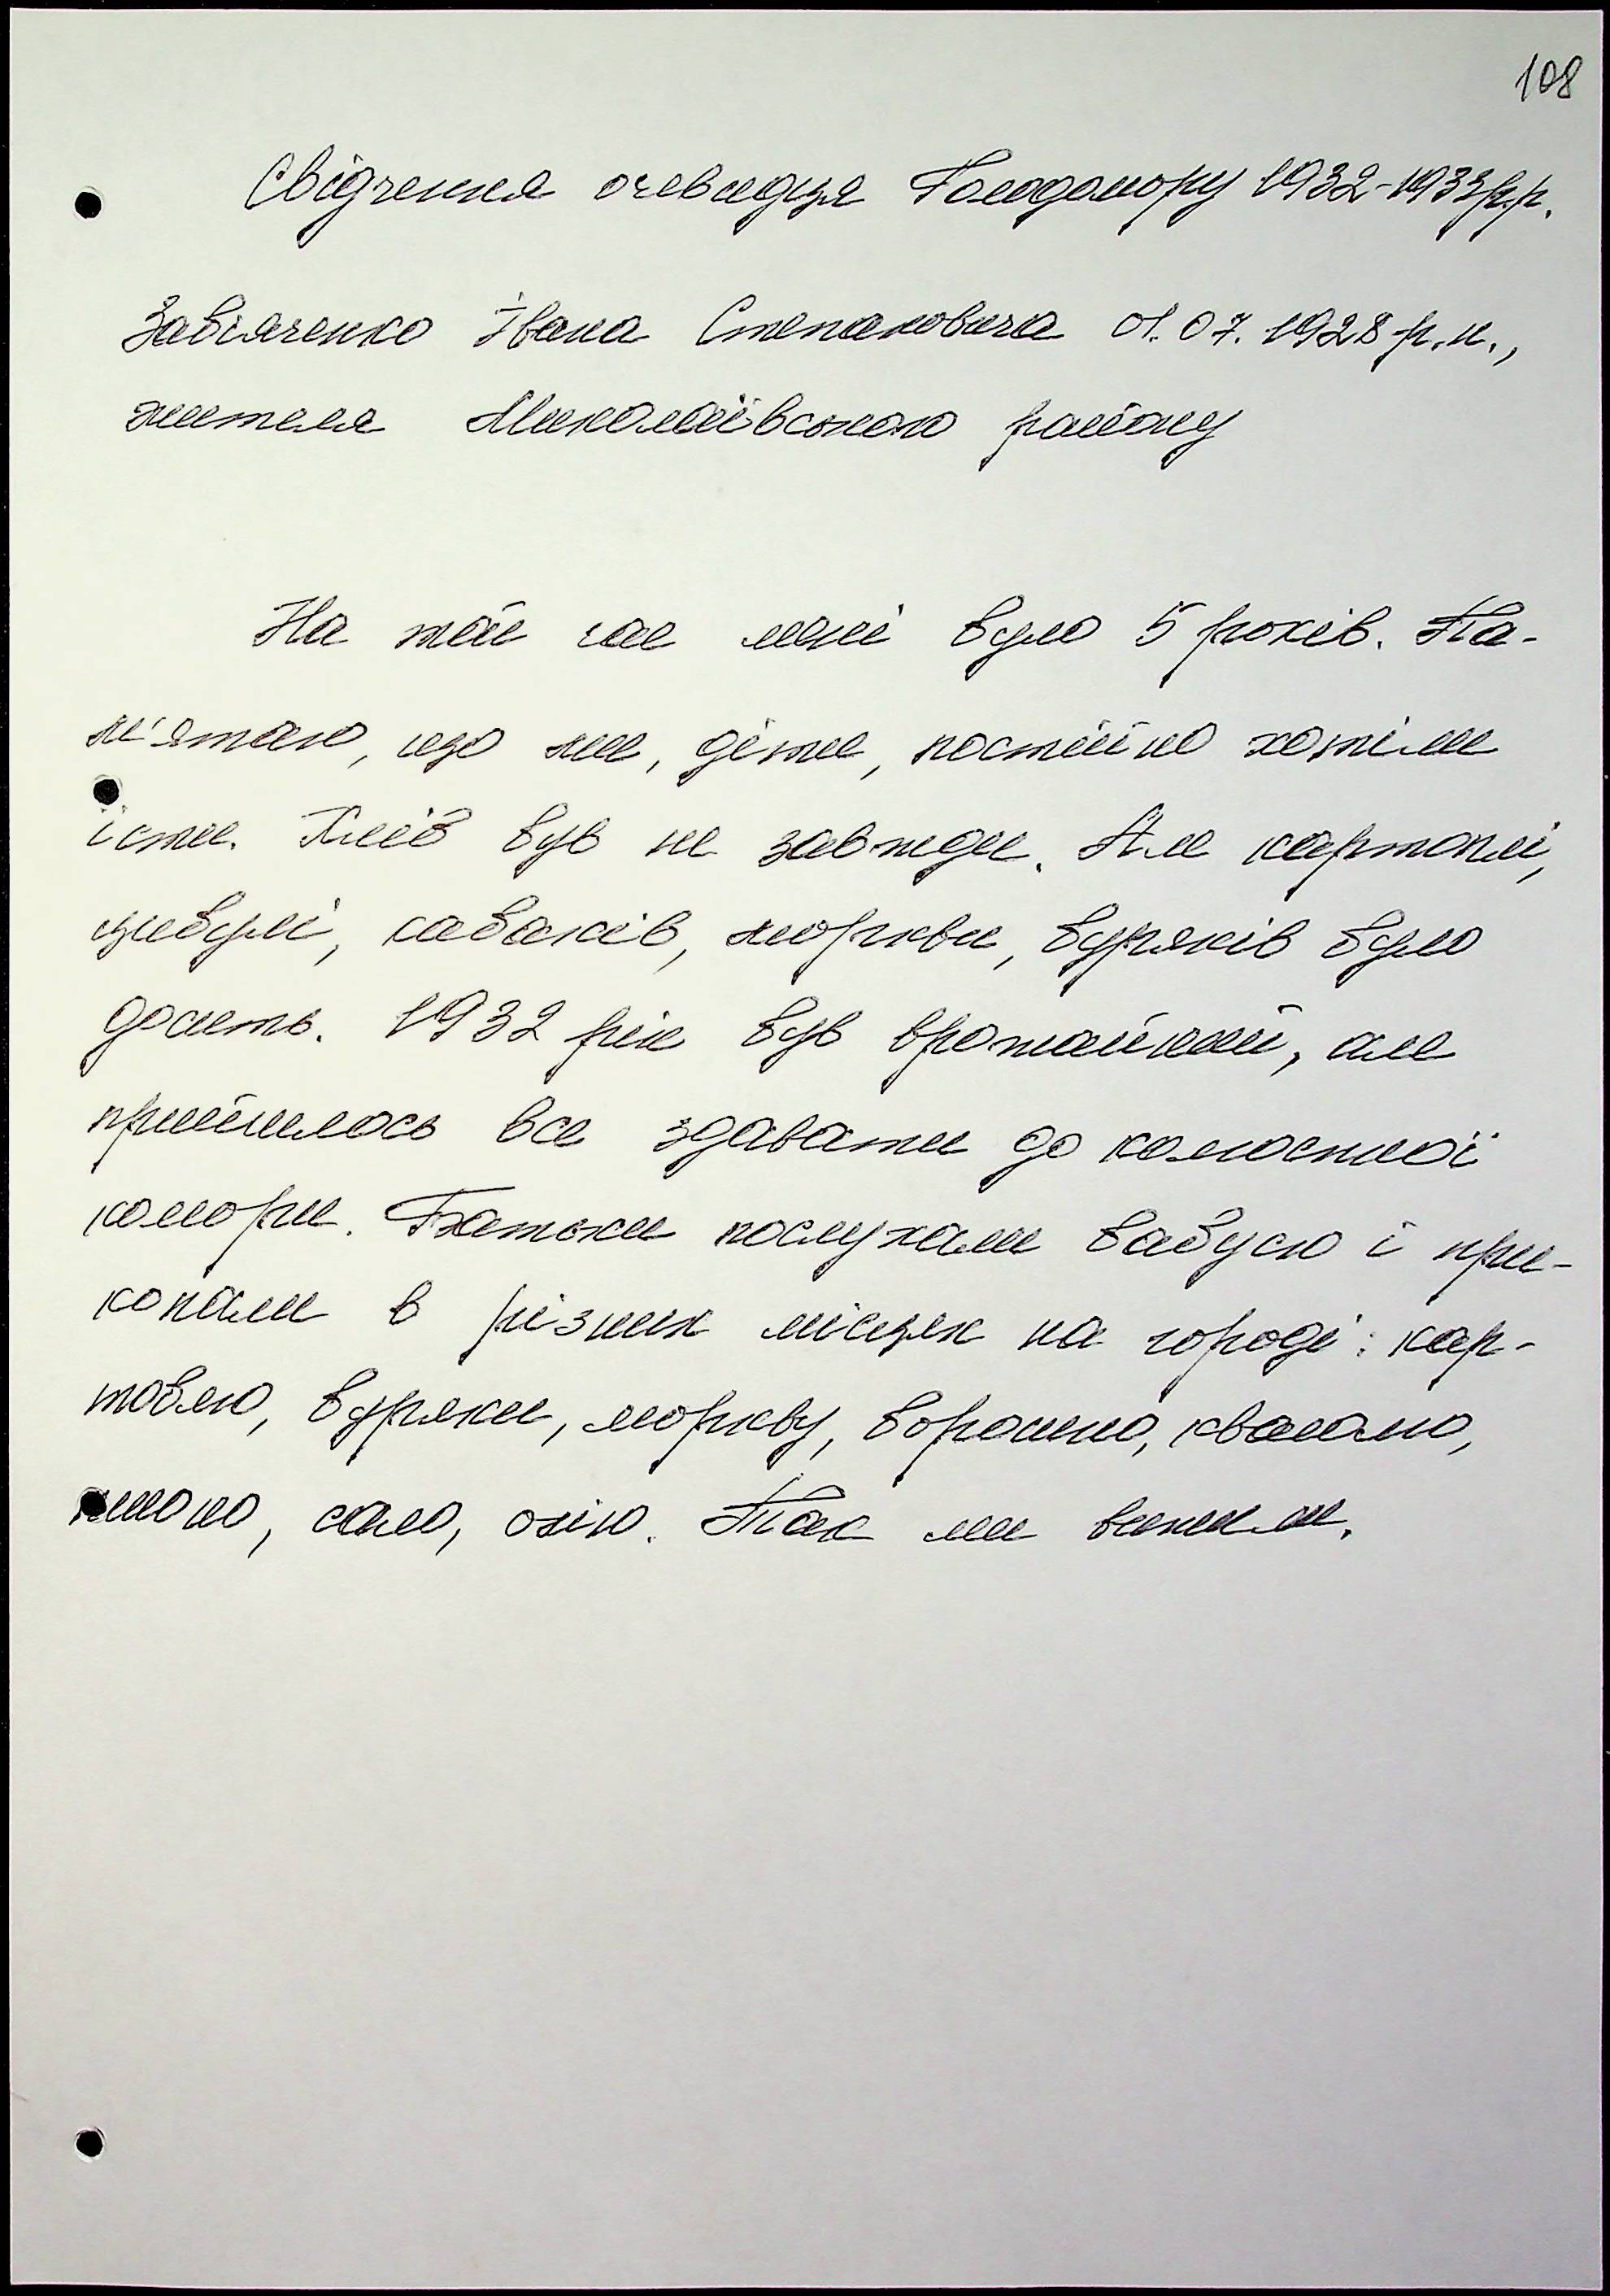 108
Свідчення очевидця Голодомору 1932-1933 р.р.
Івана Степановича 01.07.1928 р.н.,
жителя Миколаївського району
На той час мені було 5 років. Па-
м'ятаю, що ми, діти, постійно хотіли
їсти. Хліб був не завжди. Але картоплі,
цибулі, кабаків, моркви, буряків було
досить. 1932 рік був врожайний, але
прийшлось все здавати до колгоспної
комори. Батьки послухали бабусю і при-
копали в різних місцях на городі: кар-
топлю, буряки, моркву, борошно, квасолю,
пшоно, сало, олію. Так ми вижили.